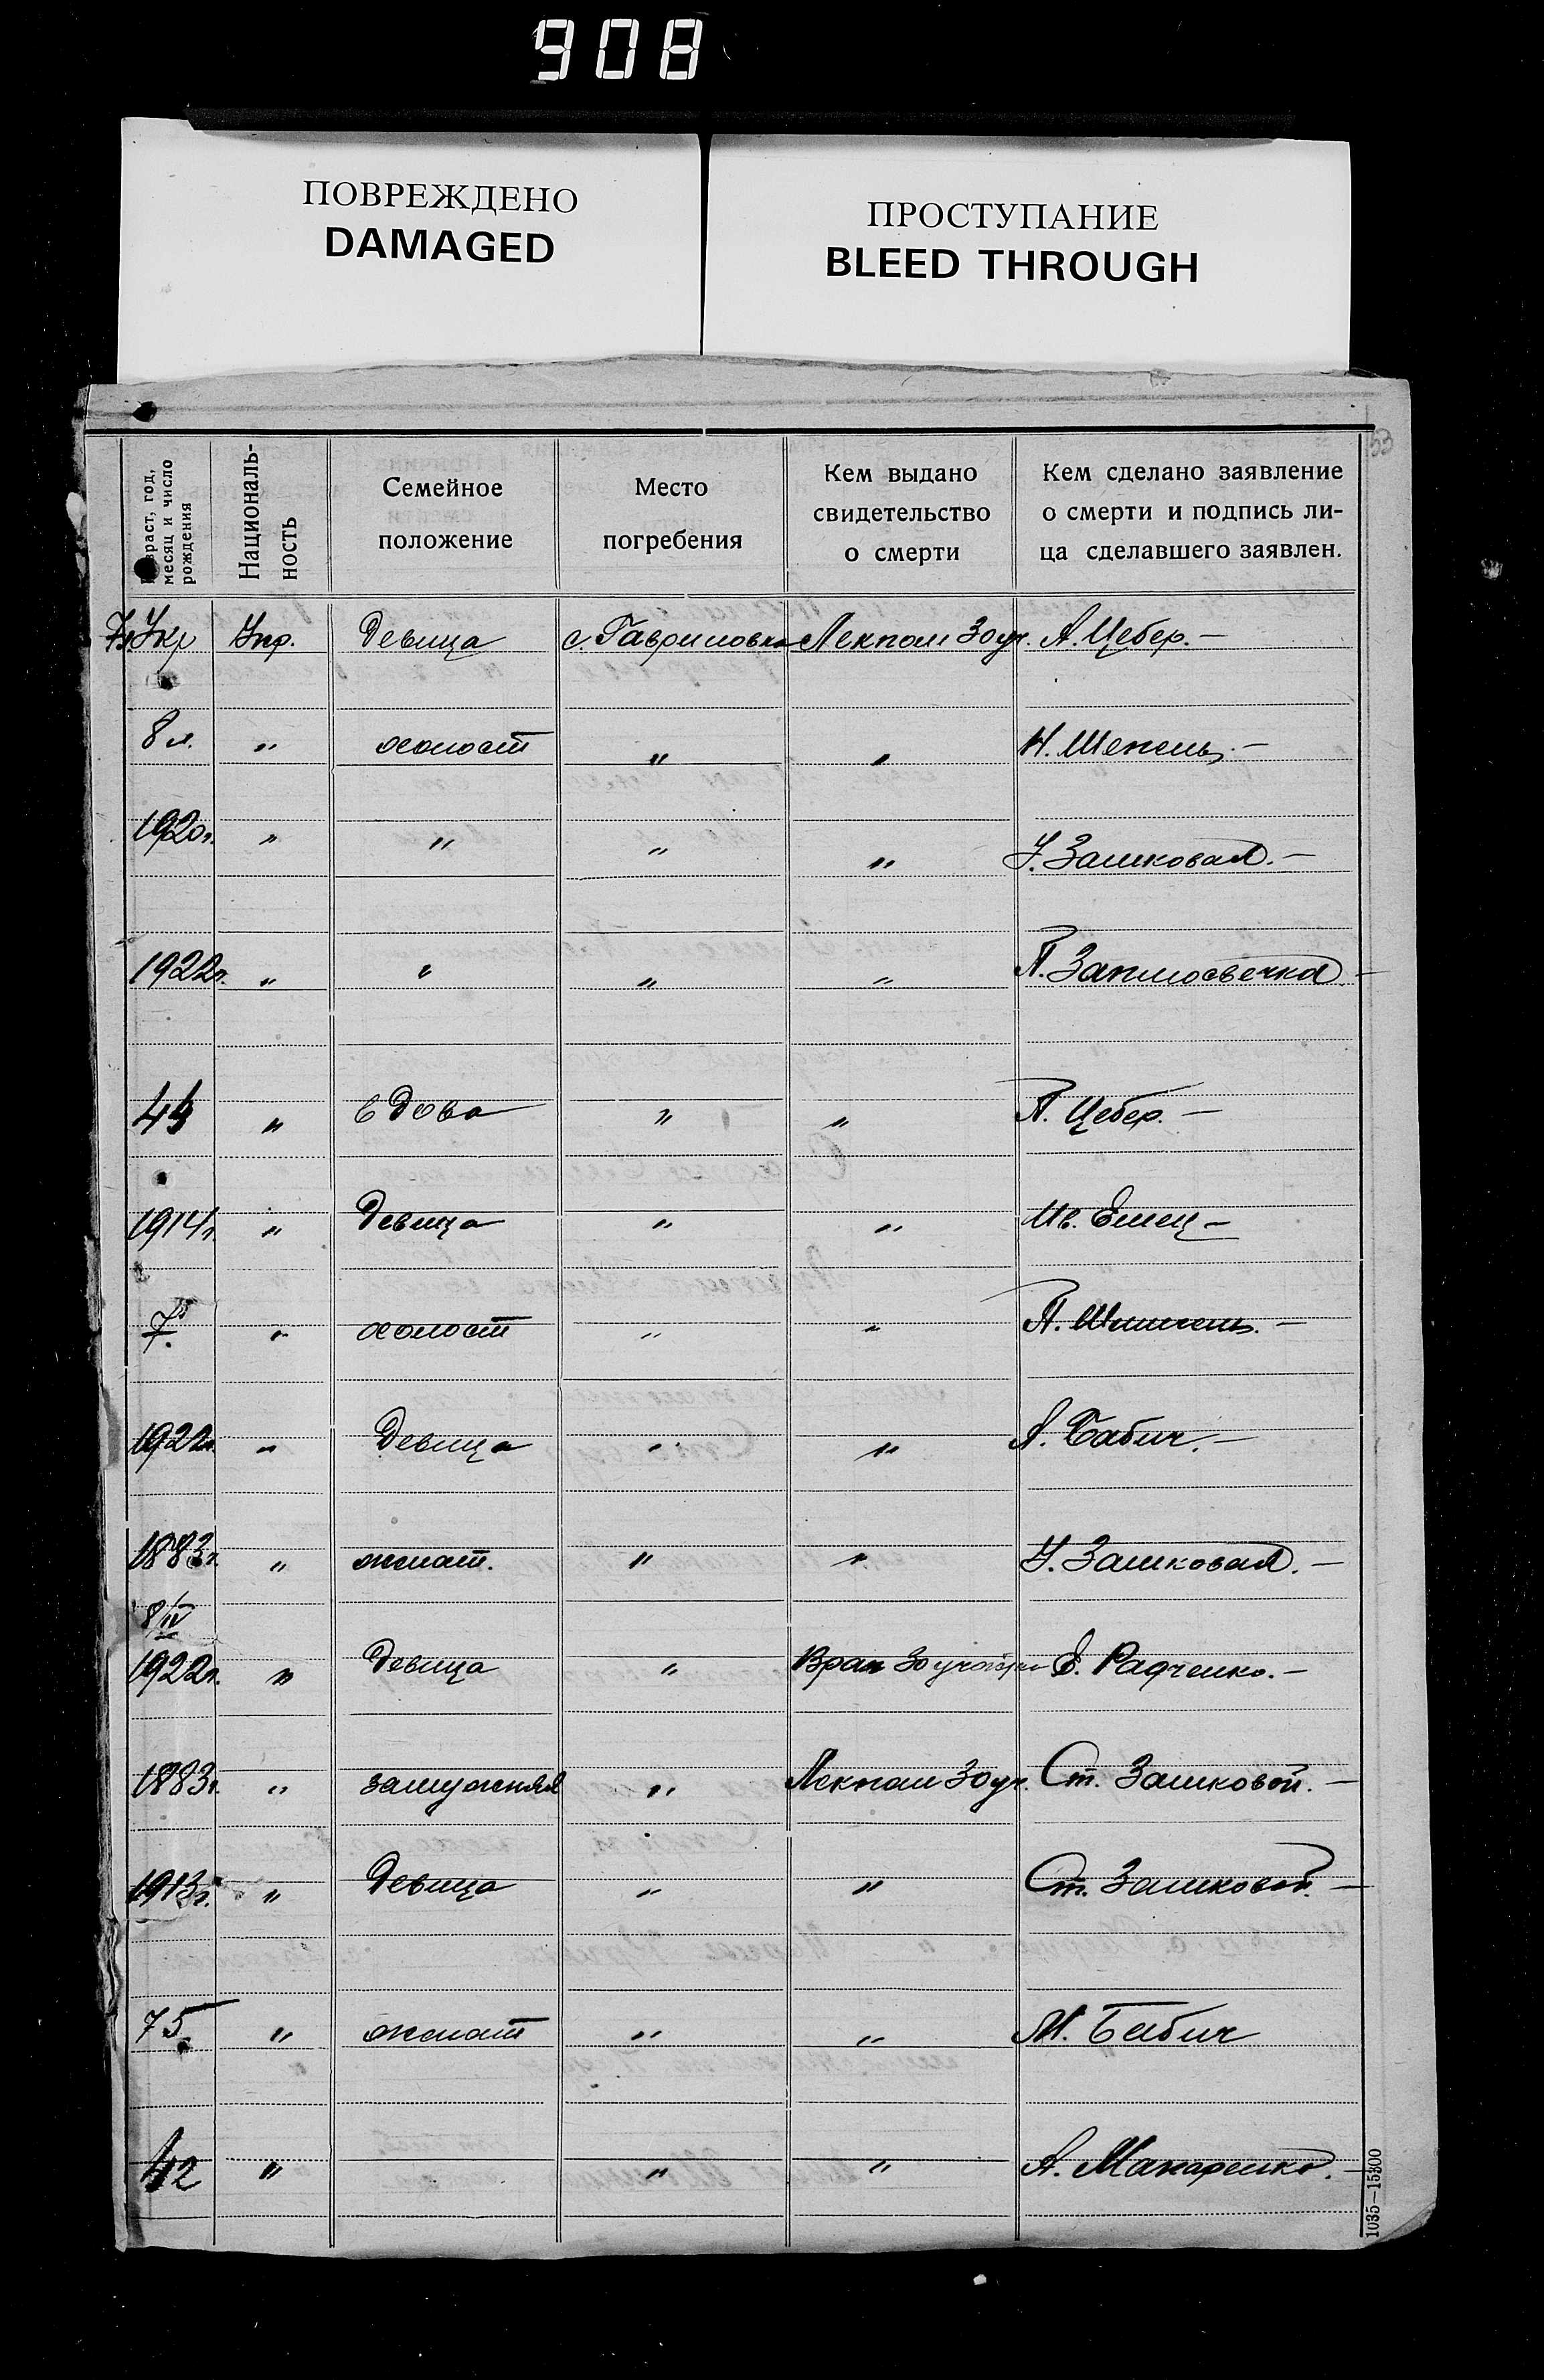 908
ПОВРЕЖДЕНО
DAMAGED
ПРОСТУПАНИЕ
BLEED THROUGH
53
Возраст, год, месяц и число рождения
Националь-
ность
Семейное
положение
Место
погребения
Кем выдано
свидетельство
о смерти
Кем сделано заявление
о смерти и подпись ли-
ца сделавшего заявлен.
Укр Укр. девица с. Гавриловка Лекпом 3 оуч. А. Цебер. –
8 л. " холост " " Н. Шепель. –
1920г. " " " " У. Зашковая. –
1922г. " " " " П. Заплюсвечка –
44 " вдова " " П. Цебер. –
1914г. " девица " " Ив. Емец –
7. " холост " " П. –
1922г. " девица " " А. Бабич. –
1883г. " женат. " " У. Зашковая. –
8/IV
1922г. " девица " Врач 3 оучастка Е. Радченко. –
1883г. " замужняя " Лекпом 3 оуч. Ст. Зашковой. –
1913г. " девица " " Ст. Зашковой. –
75 " женат " " М. Бабич
42 " " " А. Макаренко. –
1035—15300